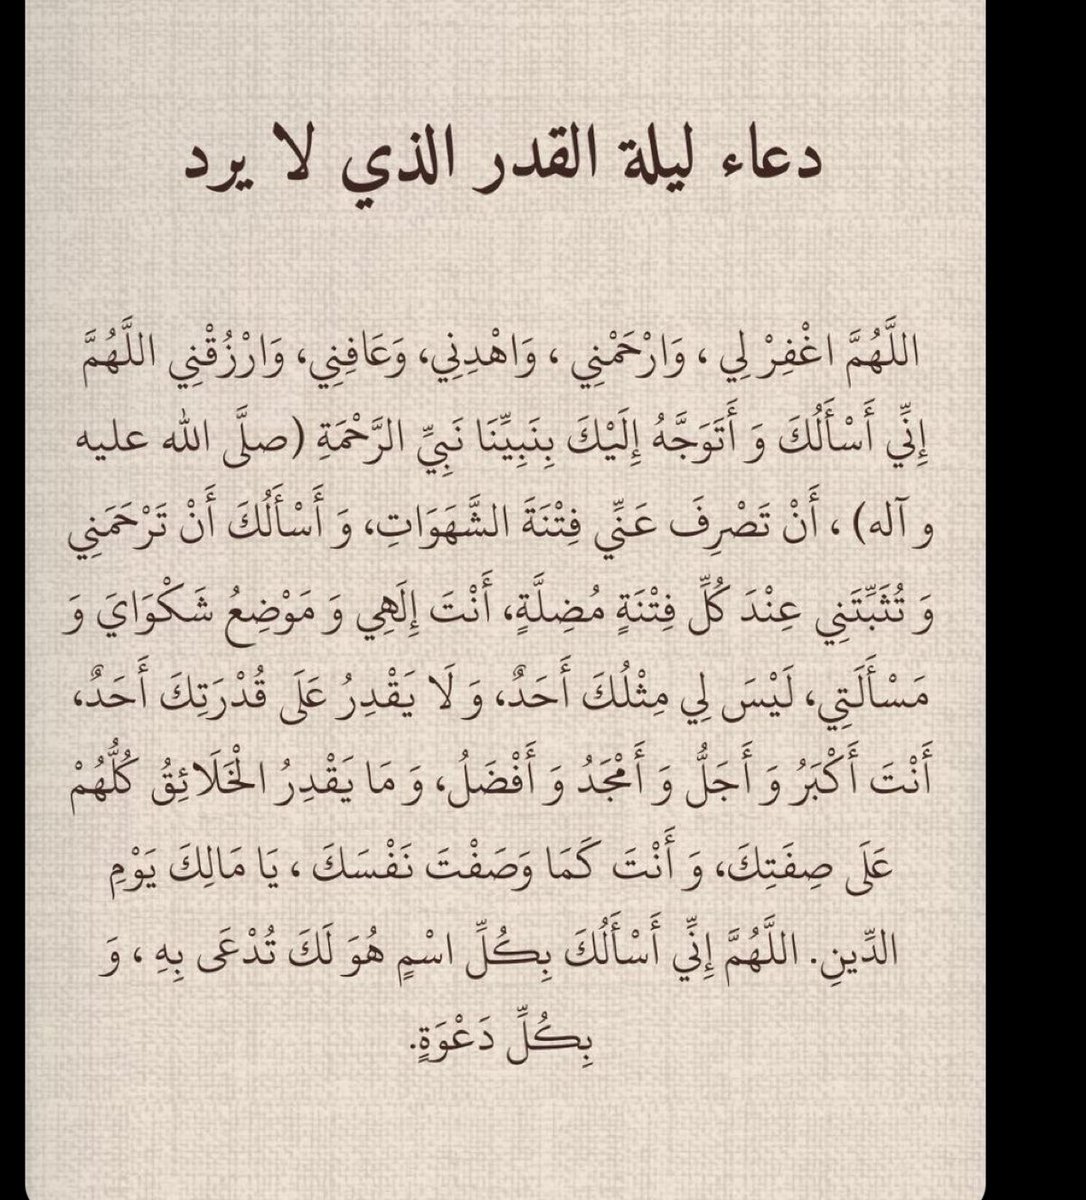 دعاء ليلة القدر الذي لا يرد
اللَّهُمَّ اغْفِرْ لِي ، وَارْحَمْنِي ، وَاهْدِنِي، وَعَافِنِي، وَارْزُقْنِي اللَّهُمَّ
إِنِّي أَسْأَلُكَ وَ أَتَوَجَّهُ إِلَيْكَ بِنَبِيِّنَا نَبِيِّ الرَّحْمَةِ (صلَّى الله عليه
و آله) ، أَنْ تَصْرِفَ عَنِّي فِتْنَةَ الشَّهَوَاتِ، وَ أَسْأَلُكَ أَنْ تَرْحَمَنِي
وَ تُثَبِّتَنِي عِنْدَ كُلِّ فِتْنَةٍ مُضِلَّةٍ، أَنْتَ إِلَهِي وَ مَوْضِعُ شَكْوَايَ وَ
مَسْأَلَتِي، لَيْسَ لِي مِثْلُكَ أَحَدٌ، وَ لَا يَقْدِرُ عَلَى قُدْرَتِكَ أَحَدٌ،
أَنْتَ أَكْبَرُ وَ أَجَلُّ وَ أَمْجَدُ وَ أَفْضَلُ، وَ مَا يَقْدِرُ الْخَلَائِقُ كُلُّهُمْ
عَلَى صِفَتِكَ، وَ أَنْتَ كَمَا وَصَفْتَ نَفْسَكَ ، يَا مَالِكَ يَوْمِ
الدِّينِ. اللَّهُمَّ إِنِّي أَسْأَلُكَ بِكُلِّ اسْمٍ هُوَ لَكَ تُدْعَى بِهِ ، وَ
بِكُلِّ دَعْوَةٍ.